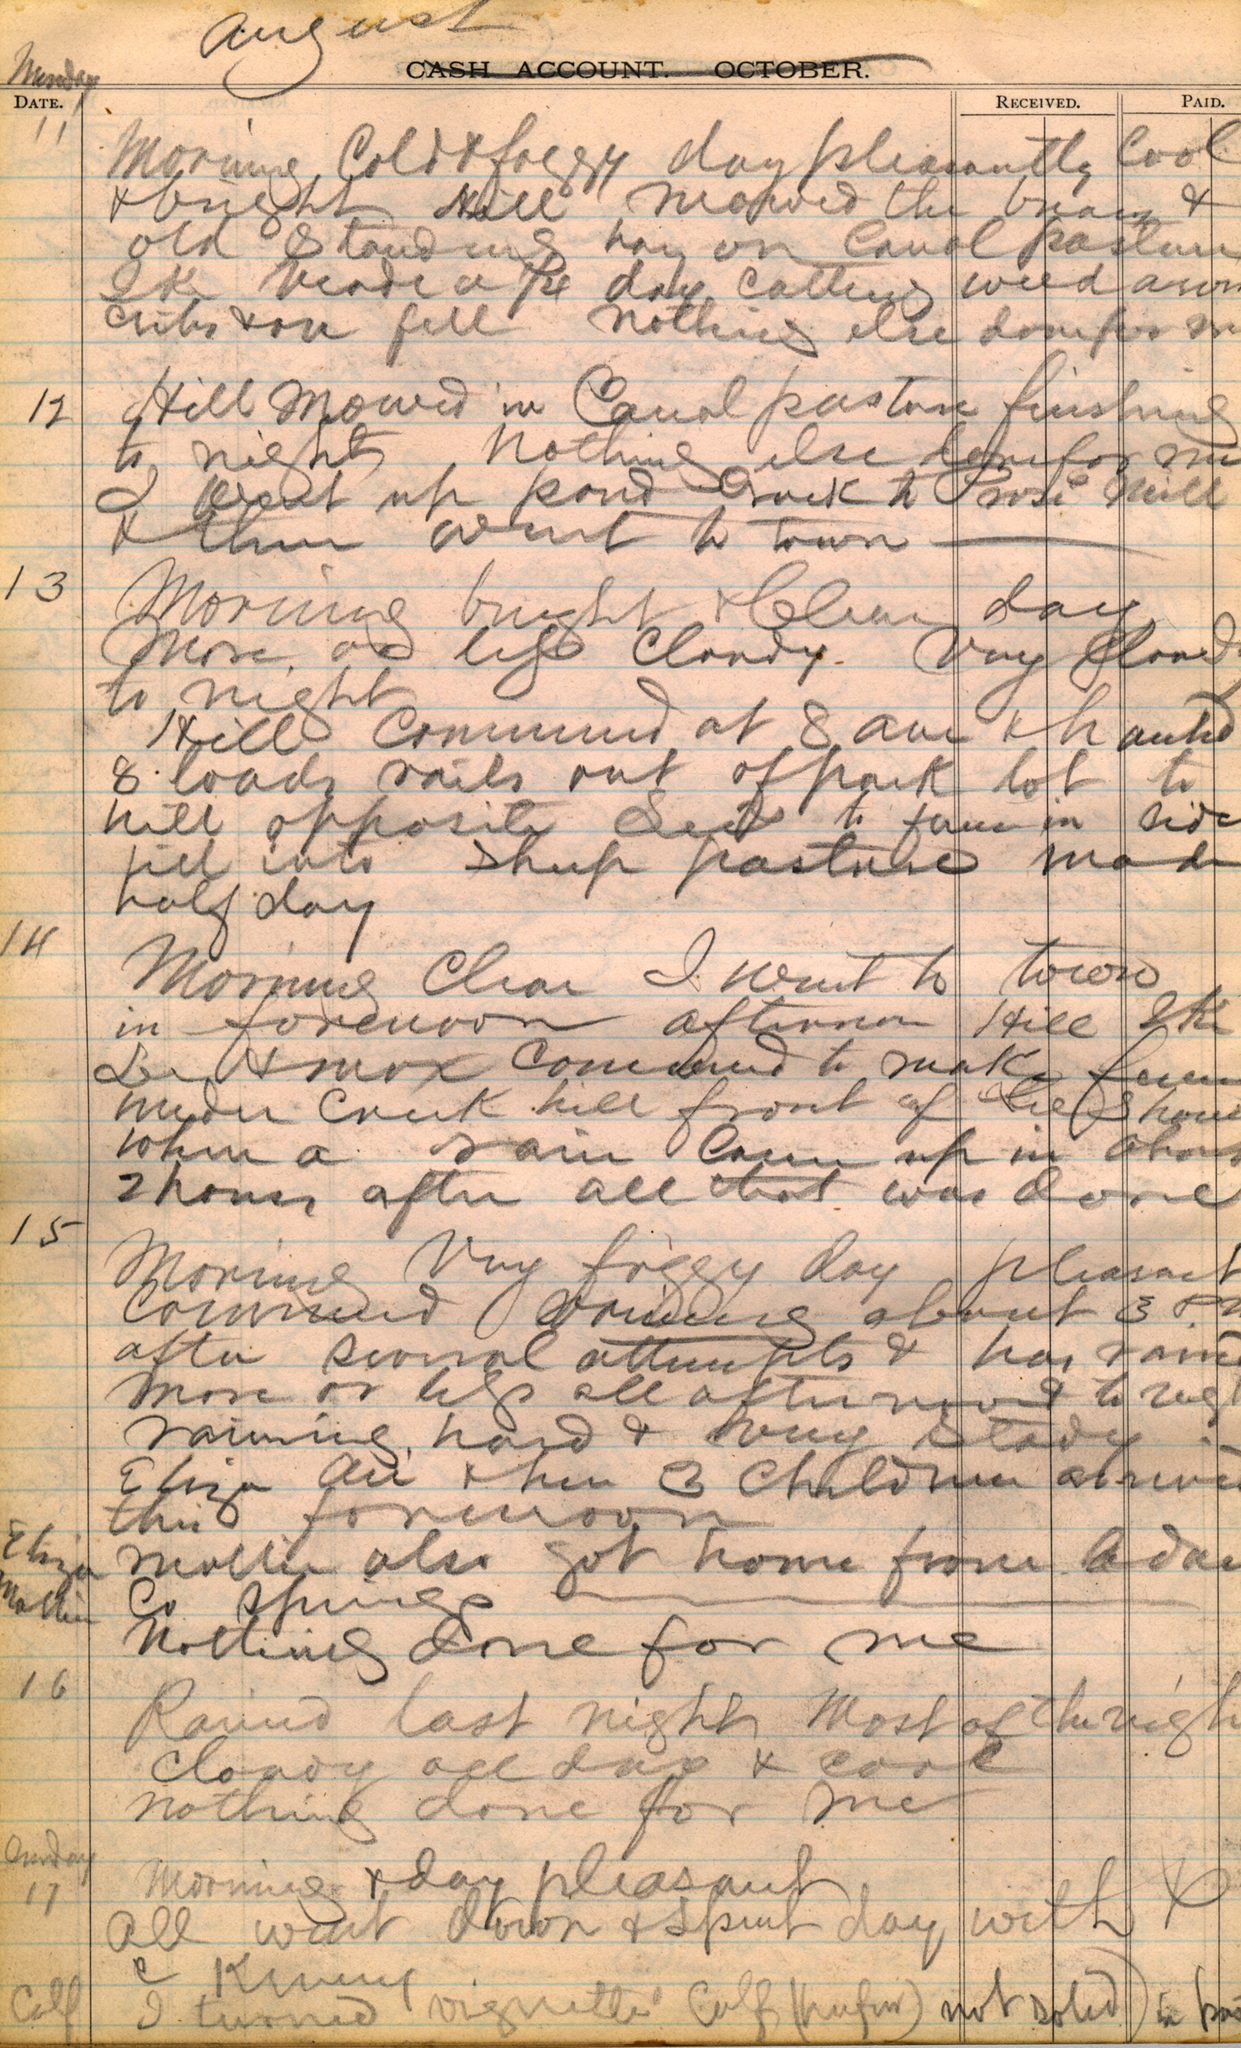 August
Monday
CASH ACCOUNT. OCTOBER.
DATE. RECEIVED. PAID.
11 Morning Cold & foggy day pleasantly Cool
& bright Hill mowed the &
old Standing hay on Canal pasture
Ike made a day Cutting weed
cribs & on fill nothing else done for me
12 Hill Mowed in Canal pasture finishing
to night Nothing else done for me
I went up pond Creek to Mill
& then went to town
13 Morning bright & Clear day
More or less Cloudy. Very Cloudy
to night
Hill Commencd at 8 am & hauled
8 loads rails out of park lot to
hill opposite to fence in side
into Sheep pasture made
half day
14 Morning Clear I went to town
in forenoon afternoon Hill Ike
Lee & max Commencd to make fence
under Creek hill front of
when a rain Came up in about
2 hours after all that was done
15 Morning Very foggy day pleasant
Commencd raining about 3 P.M
after several attempts & has raind
more or less all afternoon & to night
raining hard & very Steady
Eliza An & her 3 Children arrived
this forenoon
Eliza Mollie also got home from Adair
Mollie Co Springs
Nothing done for me
16 Raind last night Most of the night
Cloudy all day & cool
nothing done for me
Sunday
17 Morning & day pleasant
All went down & Spent day with
C Kenney
Calf I turned vignette Calf (heifer) not Sold) in